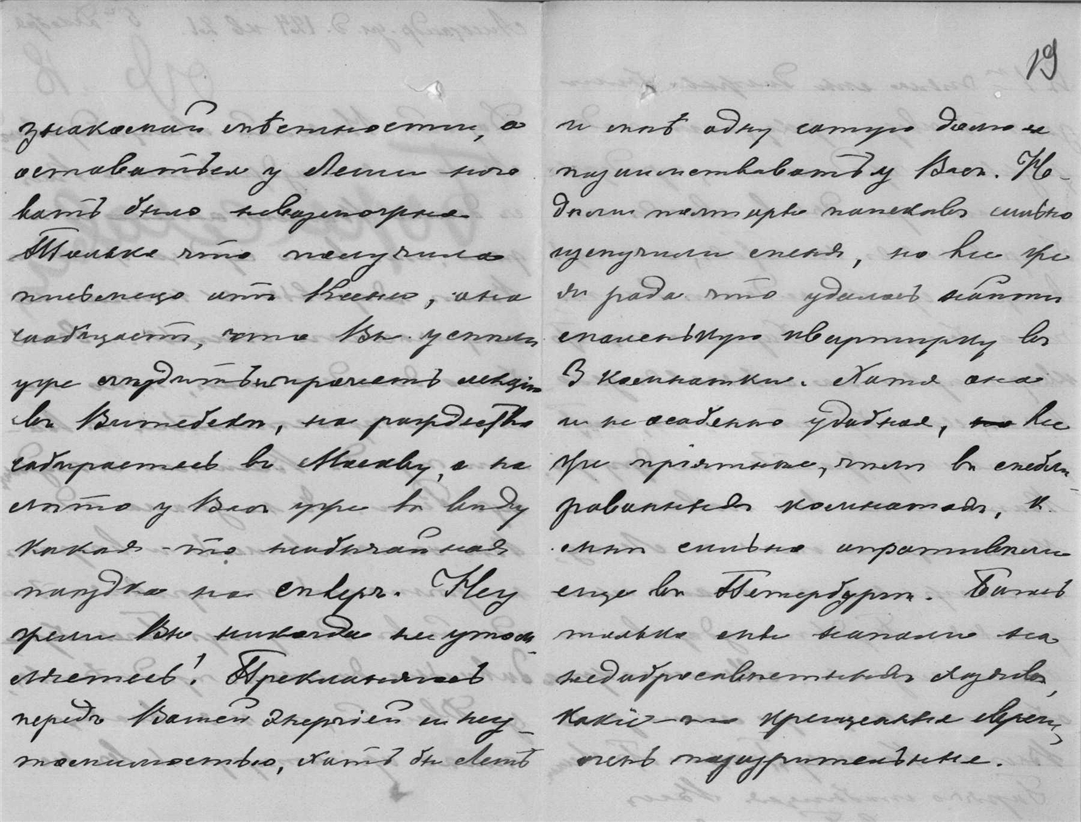 знакомай мѣстности, а
оставаться у Лели ного
вать было невозможно
Только что получила
письмецо отъ Ксени, она
сообщает, что Вы успѣли
уже съѣздить и прочесть лекцію
въ Витебскѣ, на рождество
собираетесь въ Москву, а на
лѣто у Васъ уже въ виду
какая-то необычайная
поѣздка на сѣверъ. Неу
жели Вы никогда не утом
ляетесь! Преклоняюсь
передъ Вашей энергіей и неу-
томимостью, хоть бы Лелѣ
19
и мнѣ одну сотую долю ея
позаимствовать у Васъ. Не-
дѣли полторы поисковъ сильно
измучили меня, но все же
я рада что удалось найти
маленькую квартирку въ
3 комнатки. Хотя она
и не особенно удобная, но все
же пріятнѣе, чѣмъ въ мебли-
рованныхъ комнатахъ, к.
мнѣ сильно опротивѣли
еще въ Петербургѣ. Боюсь
только мы напали на
недобросовѣстныхъ хозяевъ,
какіе-то крещеные евреи,
очень подозрительные.